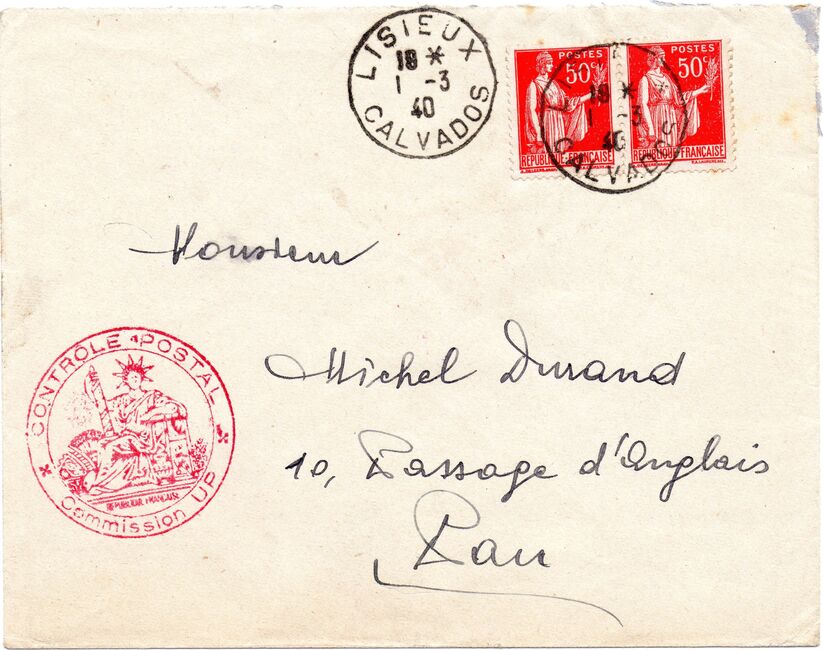 LISIEUX
18 *
1 -3
40
CALVADOS
POSTES
50c
RÉPUBLIQUE FRANÇAISE
POSTES
50c
RÉPUBLIQUE FRANÇAISE
18 *
1 -3
40
CALVADOS
Monsieur
Michel Durand
10, Passage d'Anglais
Pau
CONTRÔLE POSTAL
RÉPUBLIQUE FRANÇAISE
Commission UP